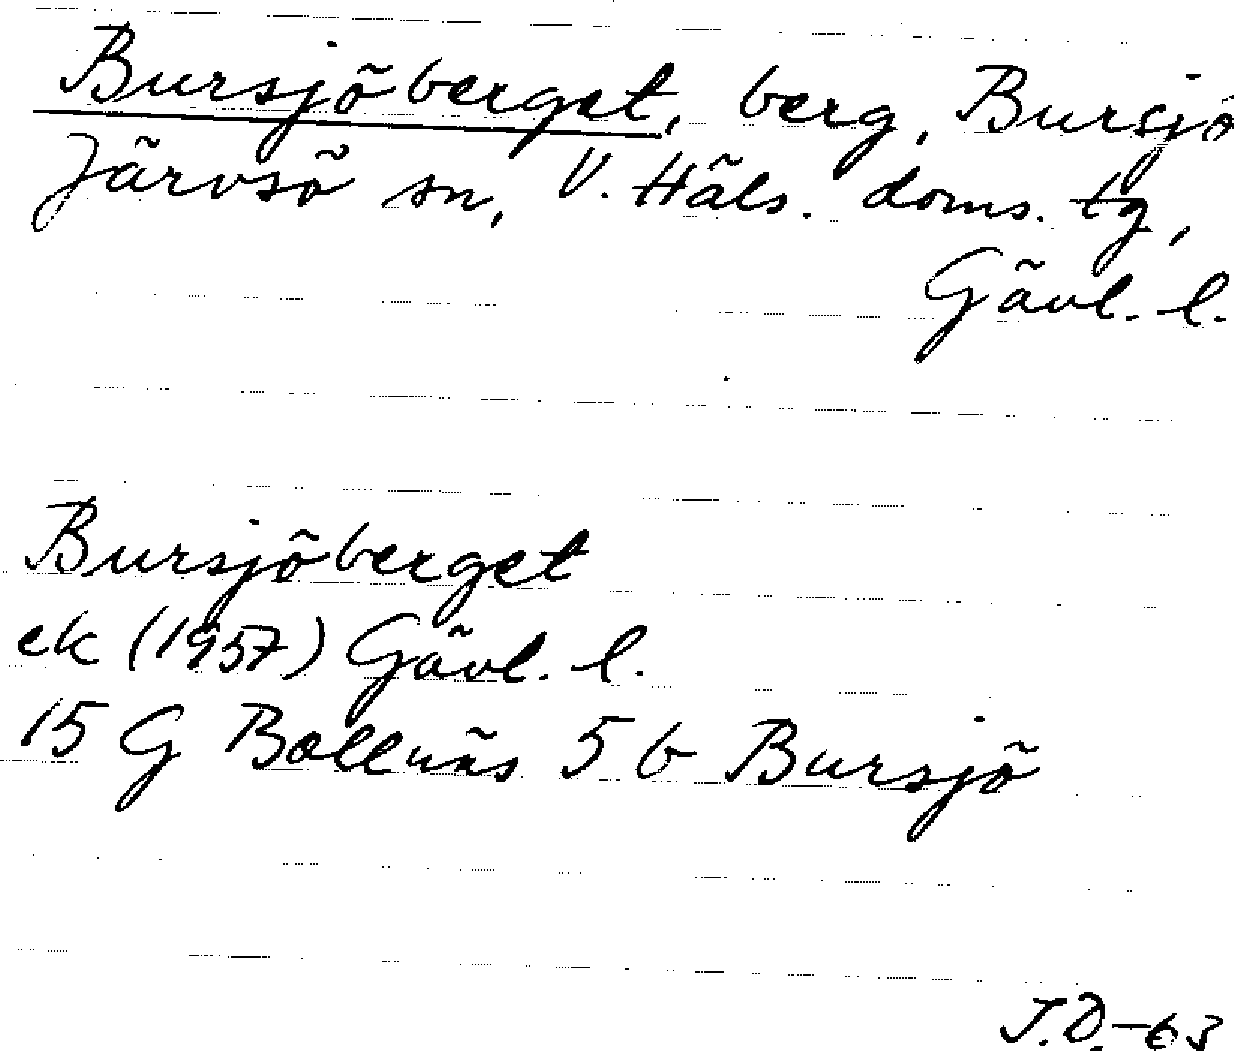 Bursjöberget, berg, Bursjö
Järvsö sn, V. Häls. doms. tg,
Gävl. l.
Bursjöberget
ek (1957) Gävl. l.
15 G Bollnäs 5 b Bursjö
J.D.-63